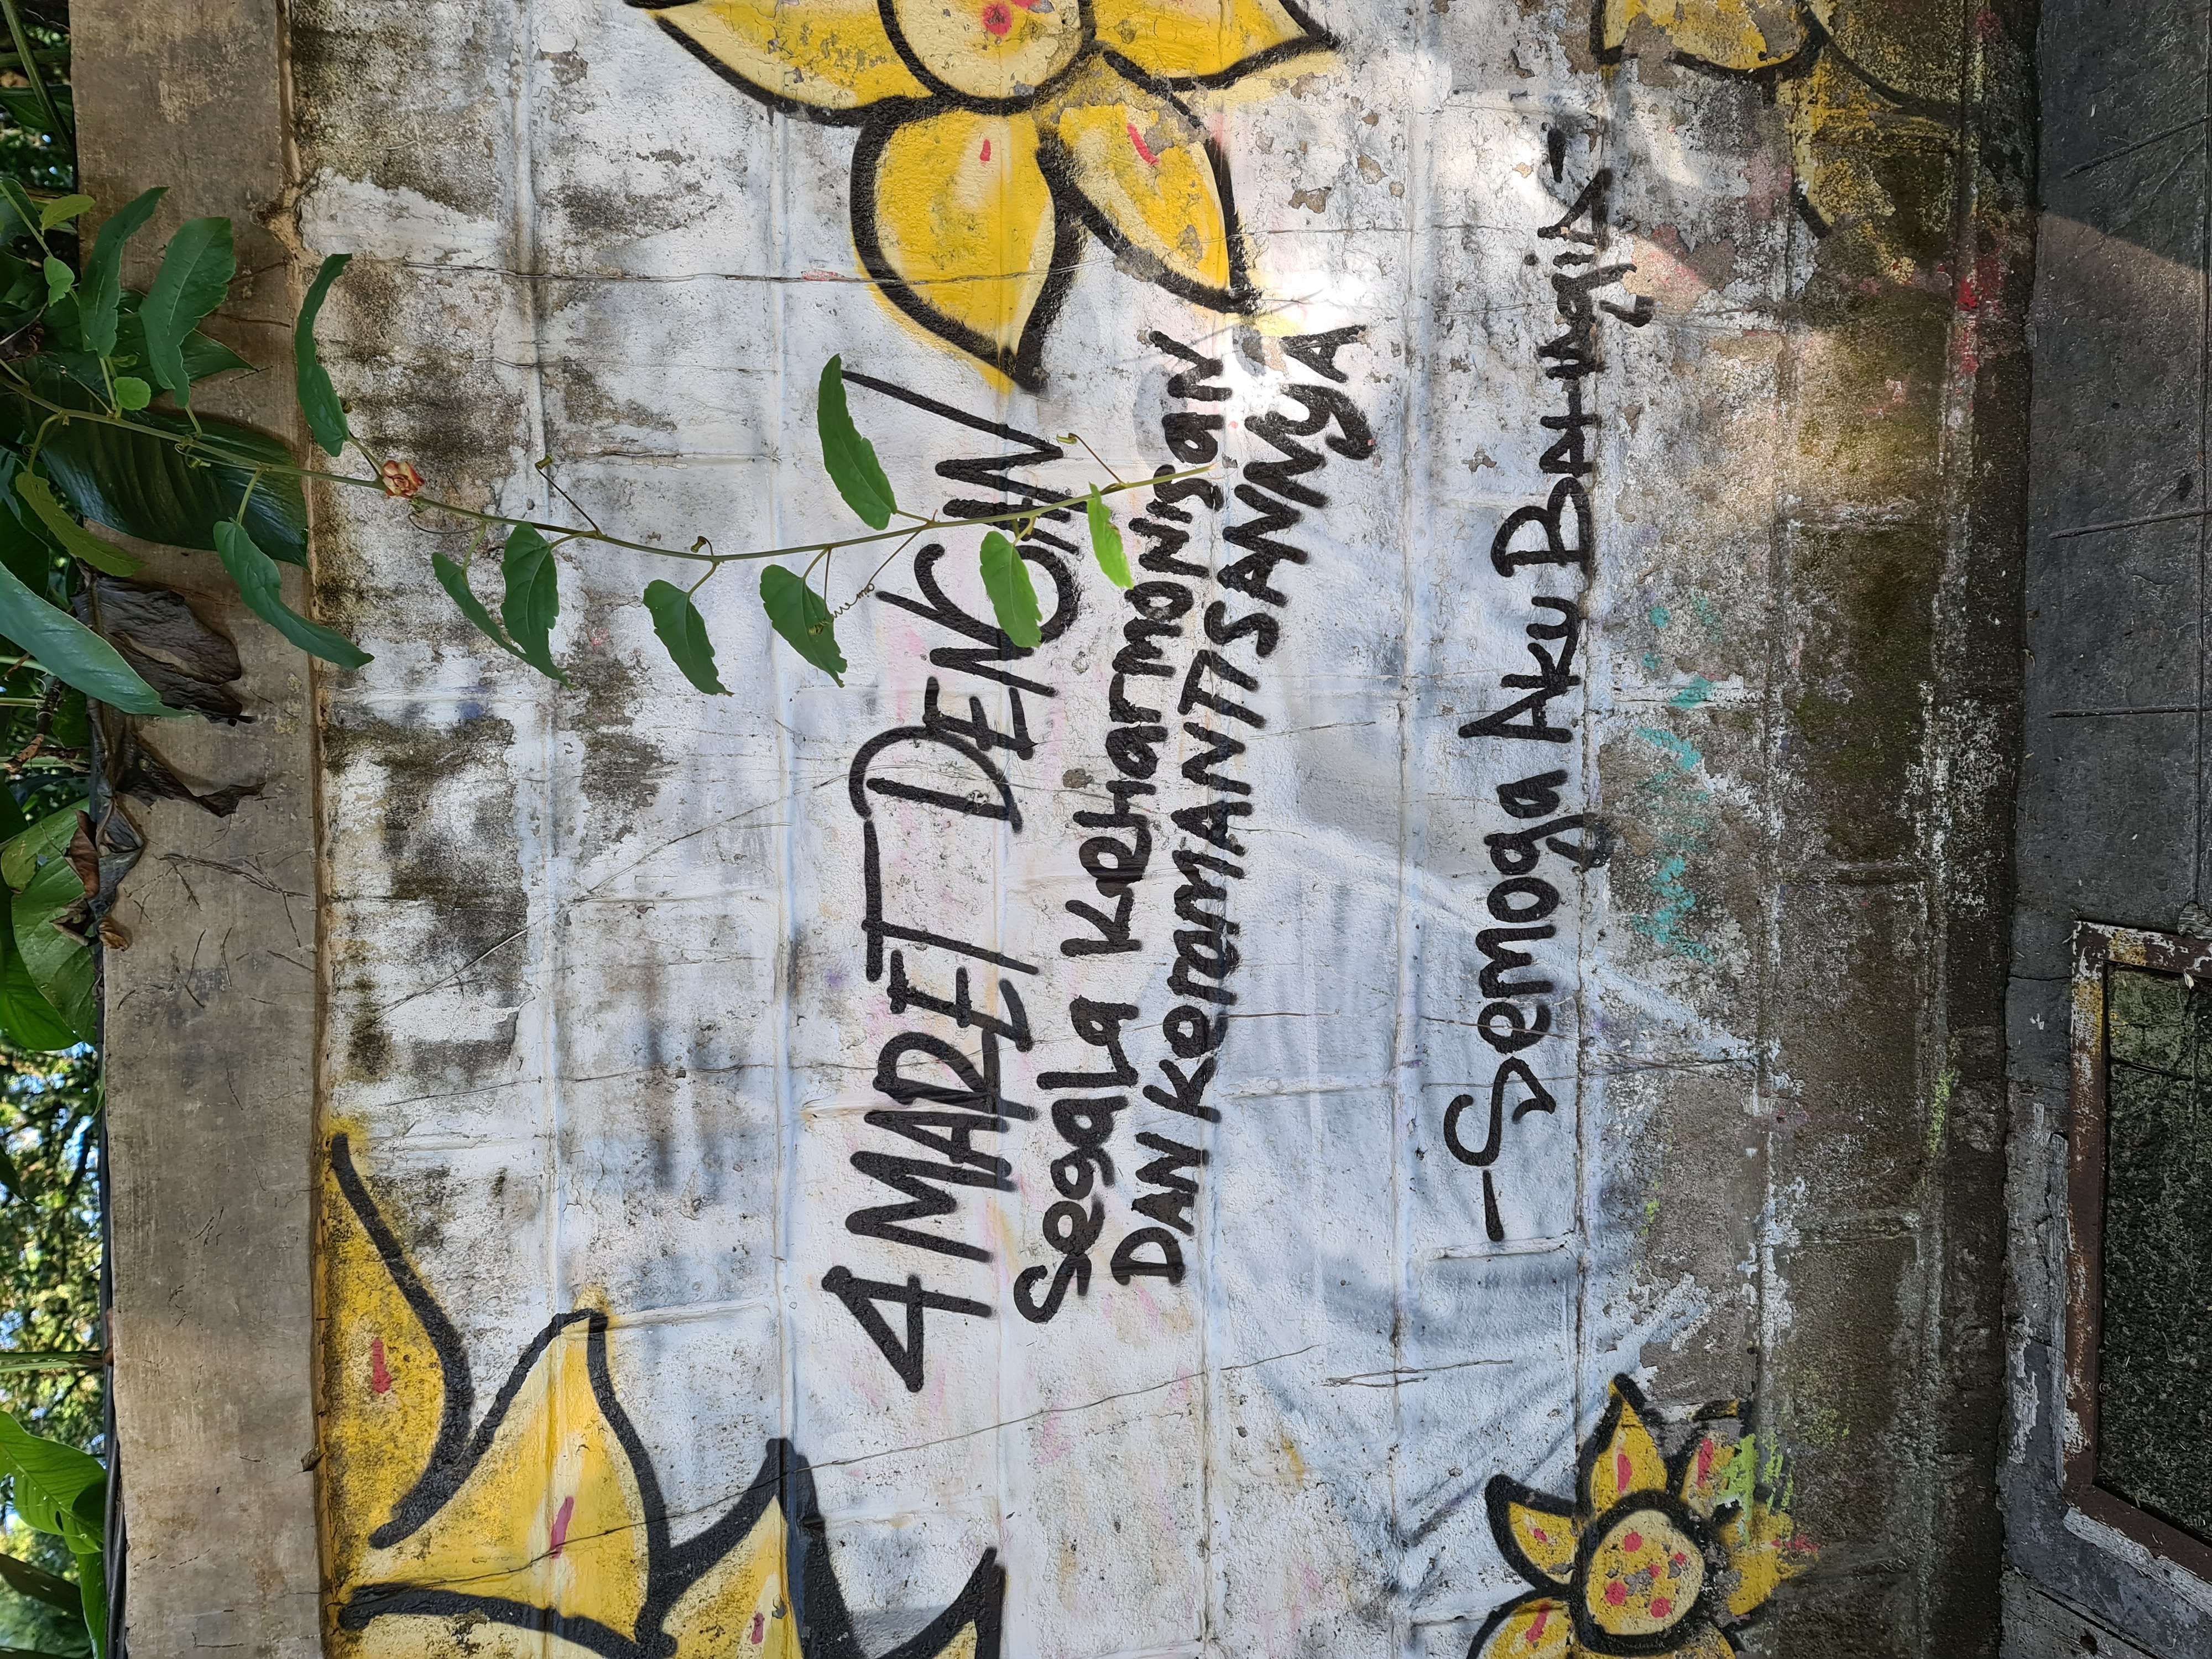 4 MARET DENGAN
Segala Keharmonisan
DAN KeromANTISANNYA
-Semoga Aku Bahagia-